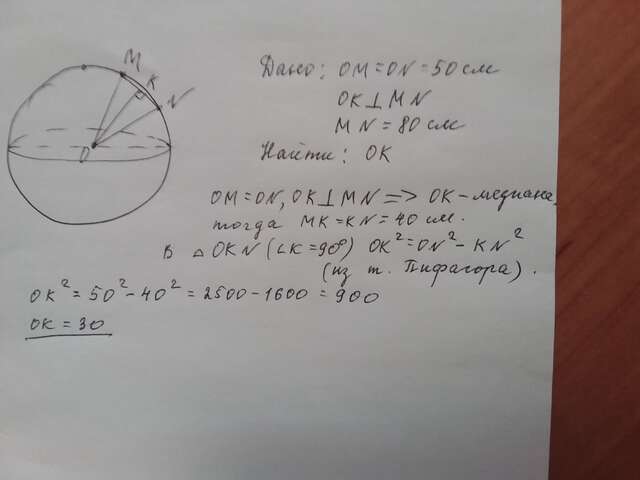 Дано: OM=ON=50 см
OK⊥MN
MN=80 см
Найти: OK
O
M
K
N
OM=ON, OK⊥MN => OK-медиана,
тогда MK=KN=40 см.
В △OKN (∠K=90°) OK²=ON²-KN²
(из т. Пифагора).
OK²=50²-40²=2500-1600=900
OK=30